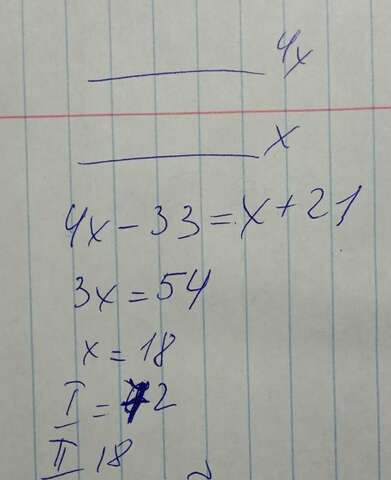 4x
x
4x - 33 = x + 21
3x = 54
x = 18
I = 72
II 18